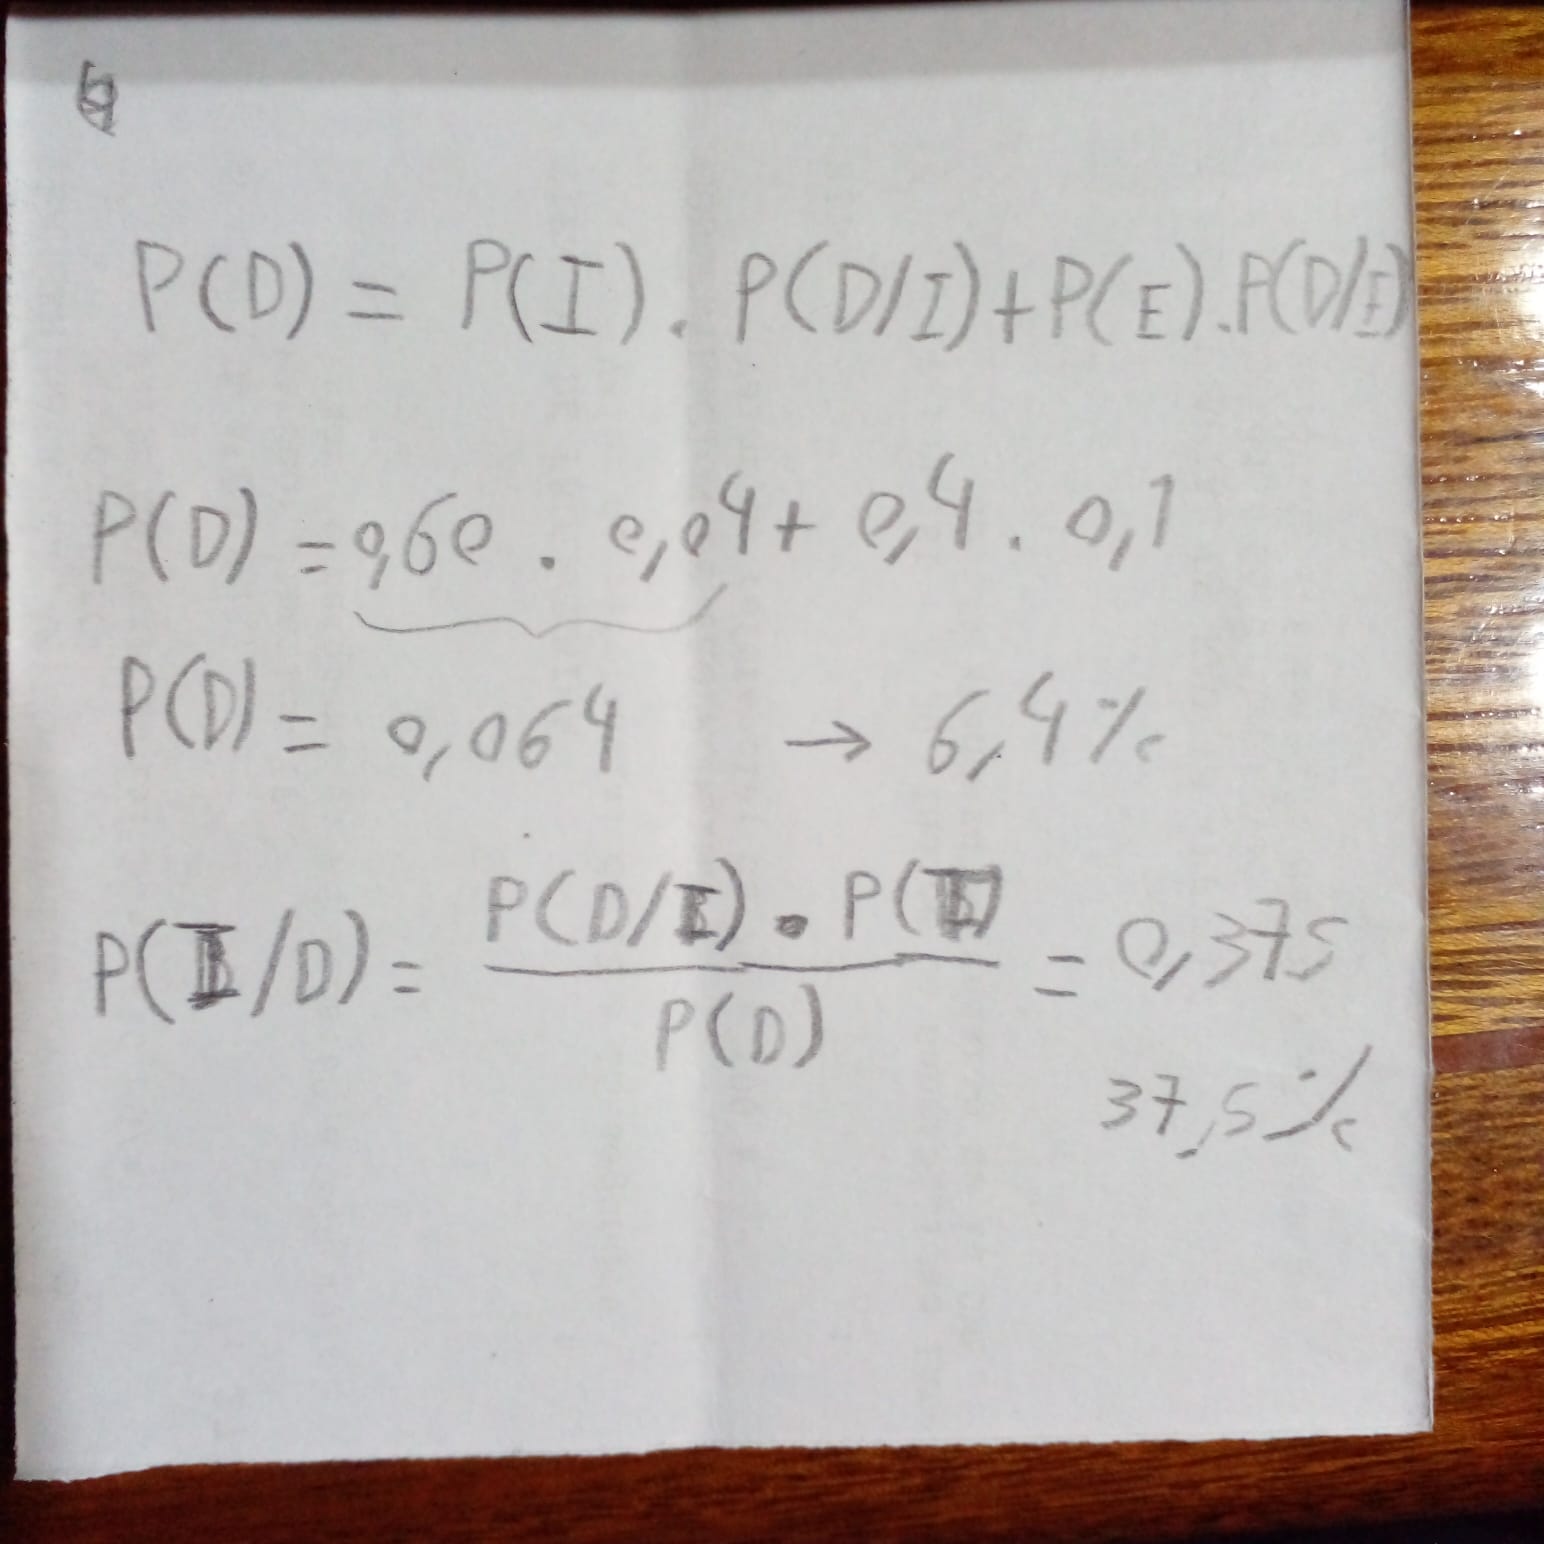 P(D) = P(I) . P(D/I) + P(E) . P(D/E)
P(D) = 0,60 . 0,04 + 0,4 . 0,1
P(D) = 0,064 → 6,4%
P(I/D) = P(D/I) . P(I)
P(D)
= 0,375
37,5%